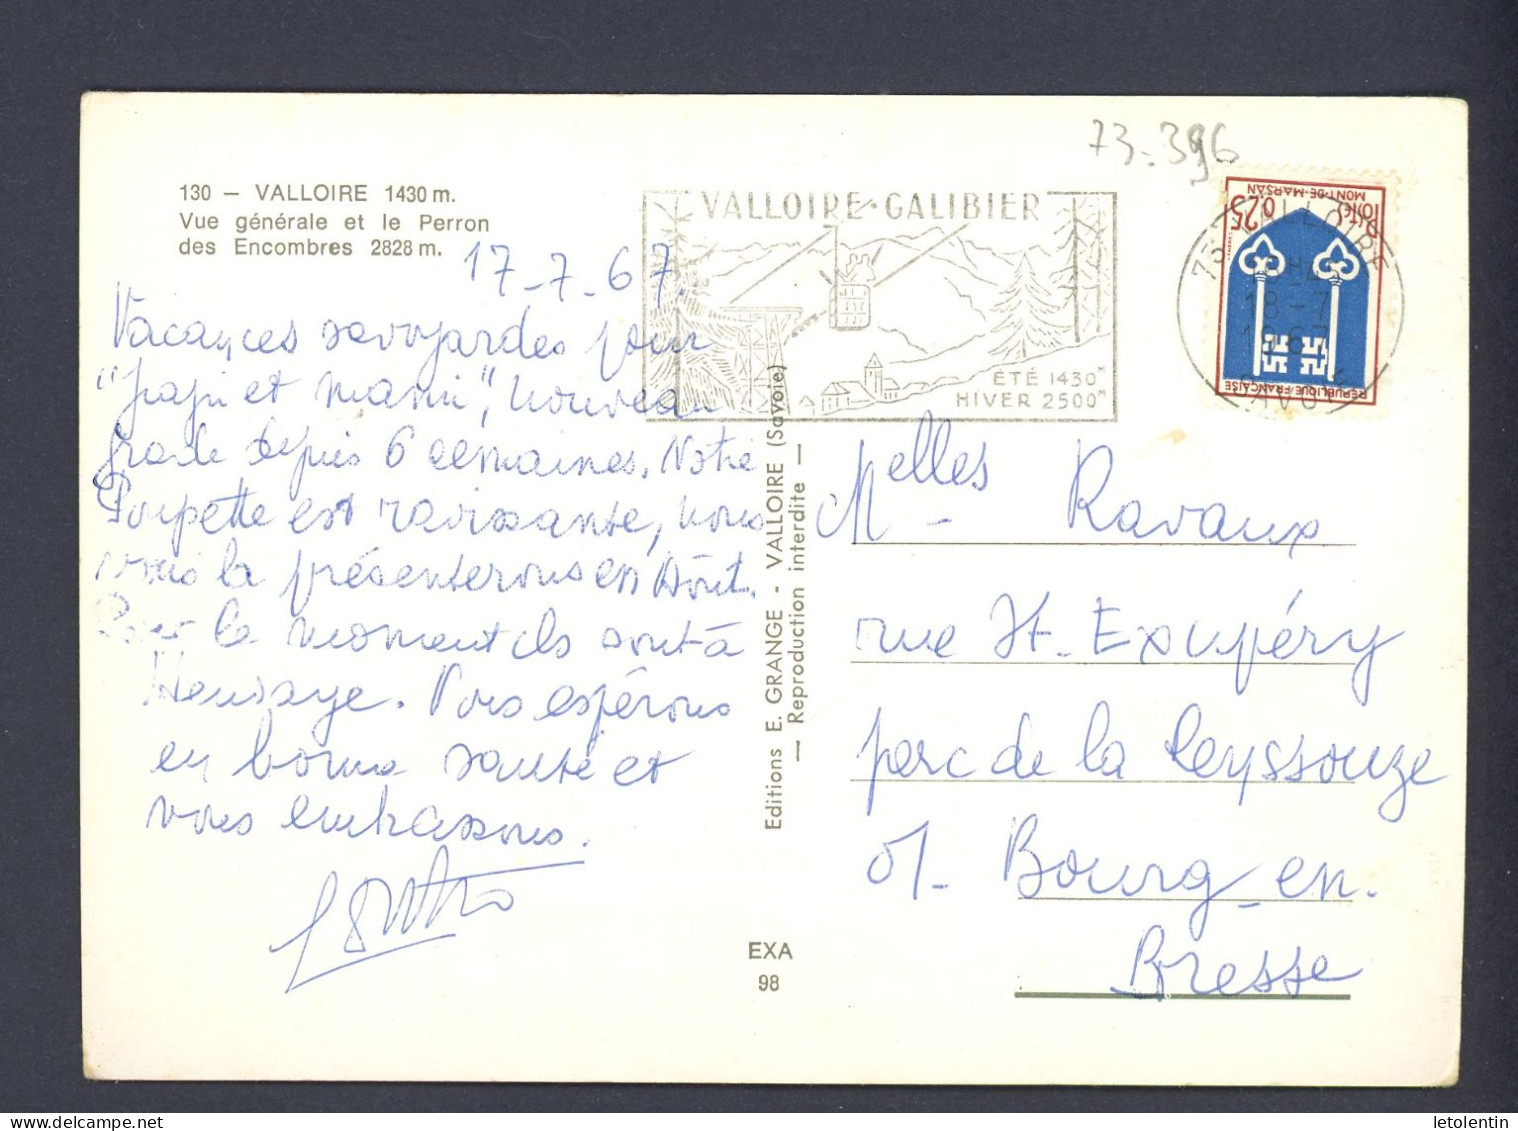 73-396
130 — VALLOIRE 1430 m.
Vue générale et le Perron
des Encombres 2828 m.
VALLOIRE-GALIBIER
ÉTÉ 1430M
HIVER 2500M
0,25 Postes
MONT-DE-MARSAN
REPUBLIQUE FRANÇAISE
73 VALLOIRE
18-7
1967
SAVOIE
17-7-67.
Vacances savoyardes pour
"papi et mami", nouveau
grade depuis 6 semaines. Notre
Poupette est ravissante, nous
vous la présenterons en Août.
Pour le moment ils sont à
. Vous espérons
en bonne santé et
vous embrassons.
Editions E. GRANGE - VALLOIRE (Savoie)
— Reproduction interdite —
EXA
98
Melles Ravaux
rue St. Exupéry
parc de la Reyssouze
01- Bourg-en-
Bresse
letolentin